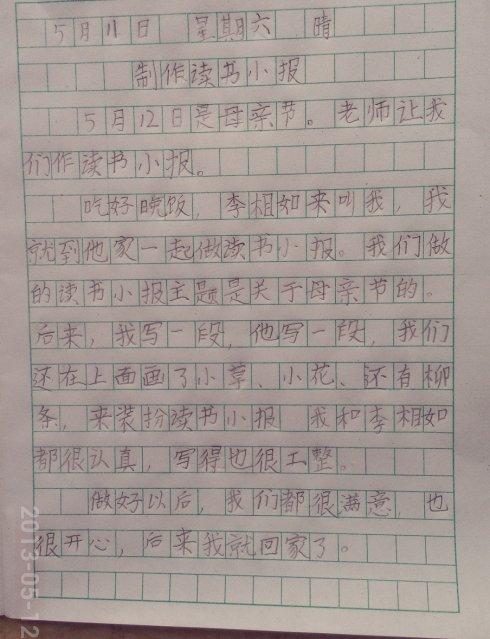 5月11日 星期六 晴
制作读书小报
5月12日是母亲节。老师让我
们作读书小报。
吃好晚饭，李相如来叫我，我
就到他家一起做读书小报。我们做
的读书小报主题是关于母亲节的。
后来，我写一段，他写一段，我们
还在上面画了小草、小花、还有柳
条，来装扮读书小报 我和李相如
都很认真，写得也很工整。
做好以后，我们都很满意，也
很开心，后来我就回家了。
2013-05-12